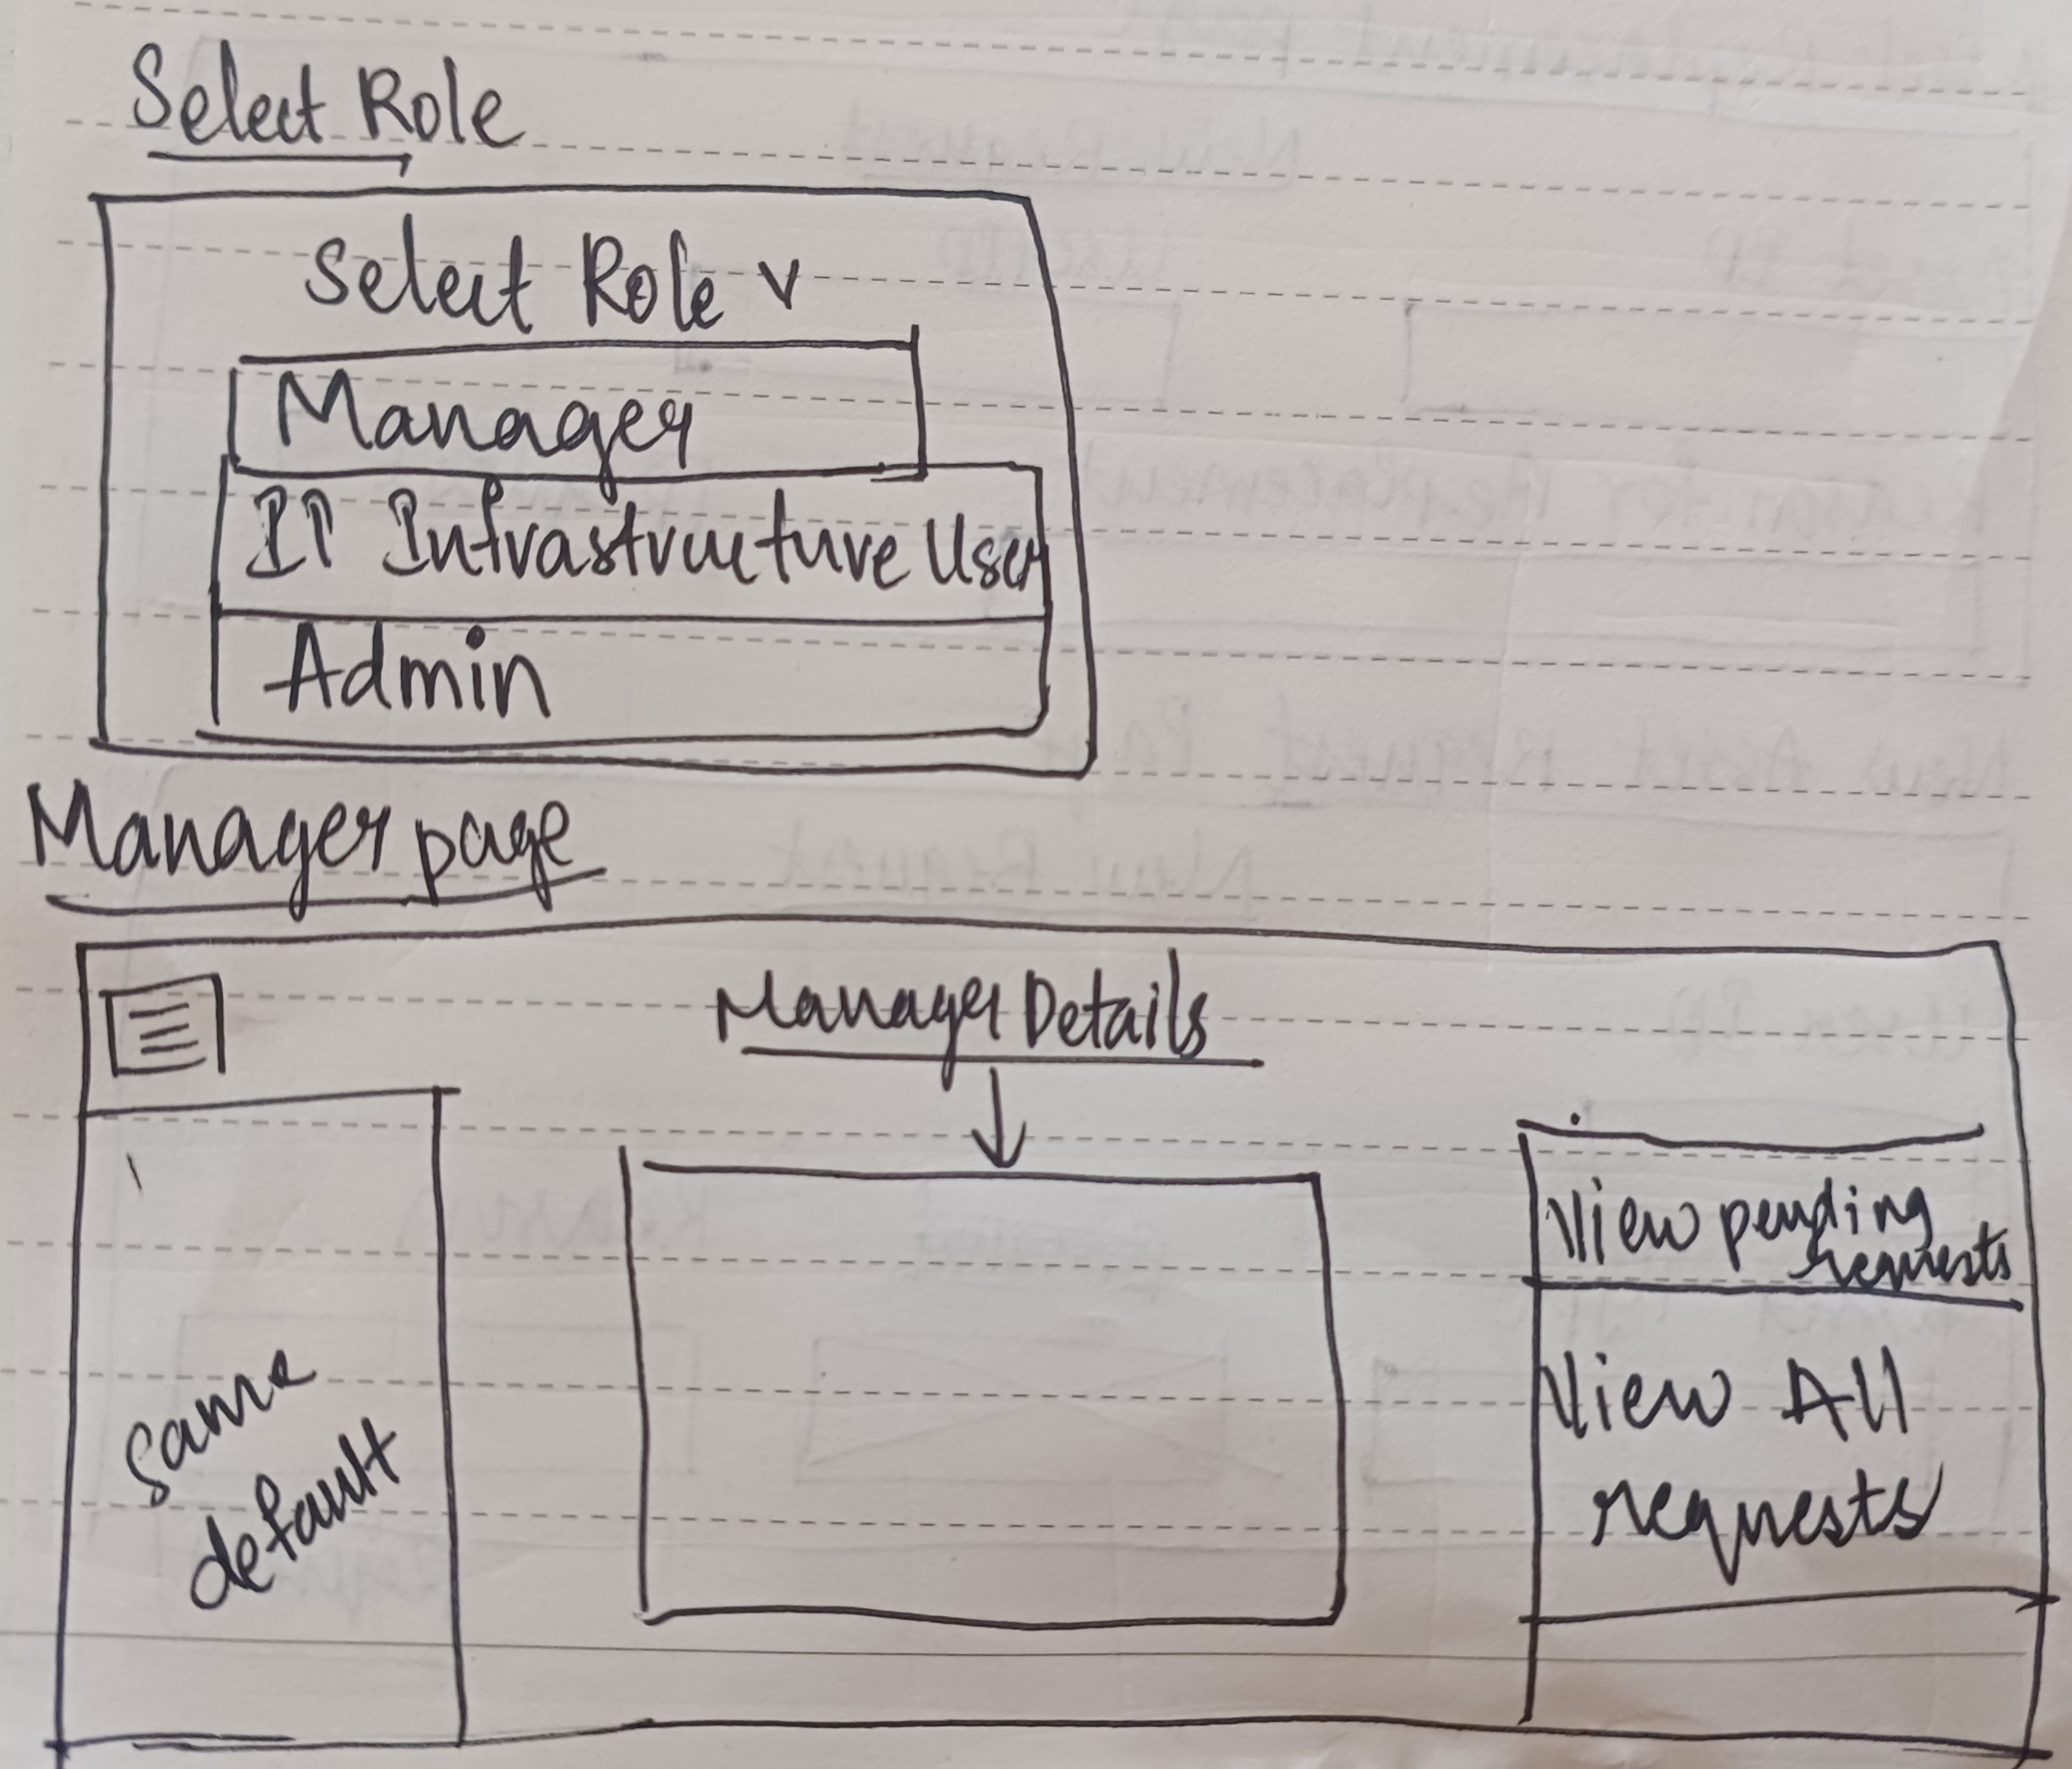 Select Role
Select Role v
Manager
IT Infrastructure User
Admin
Manager page
Manager Details
View pending
requests
View All
requests
Same
default